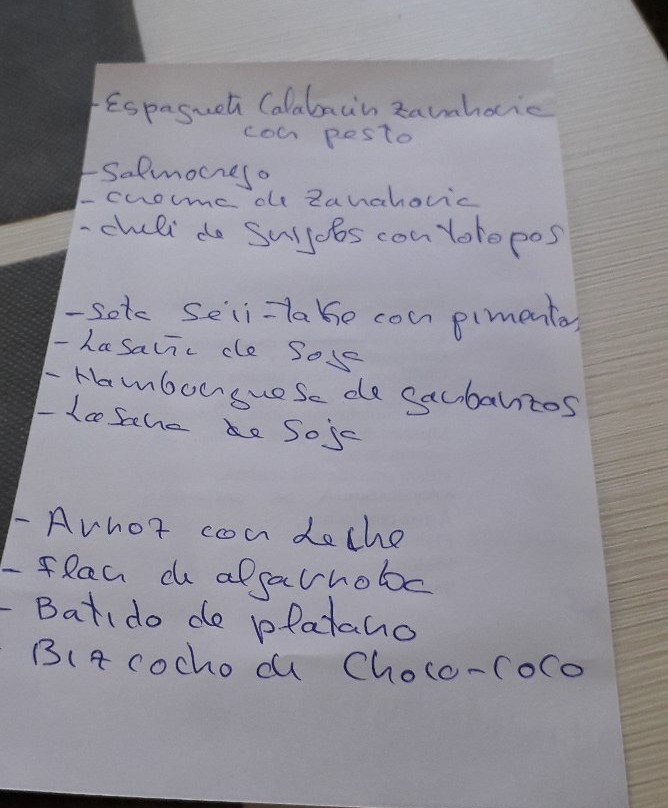 - Espagueti Calabacin zanahoria
con pesto
- Salmorejo
- crema de zanahoria
- chili de con totopos
- Seta seii-take con pimentos
- Lasaña de Soja
- Hambourguesa de garbanzos
- Lasana de Soja
- Arroz con Leche
- flan de algarroba
- Batido de platano
- Bizcocho de Choco-coco